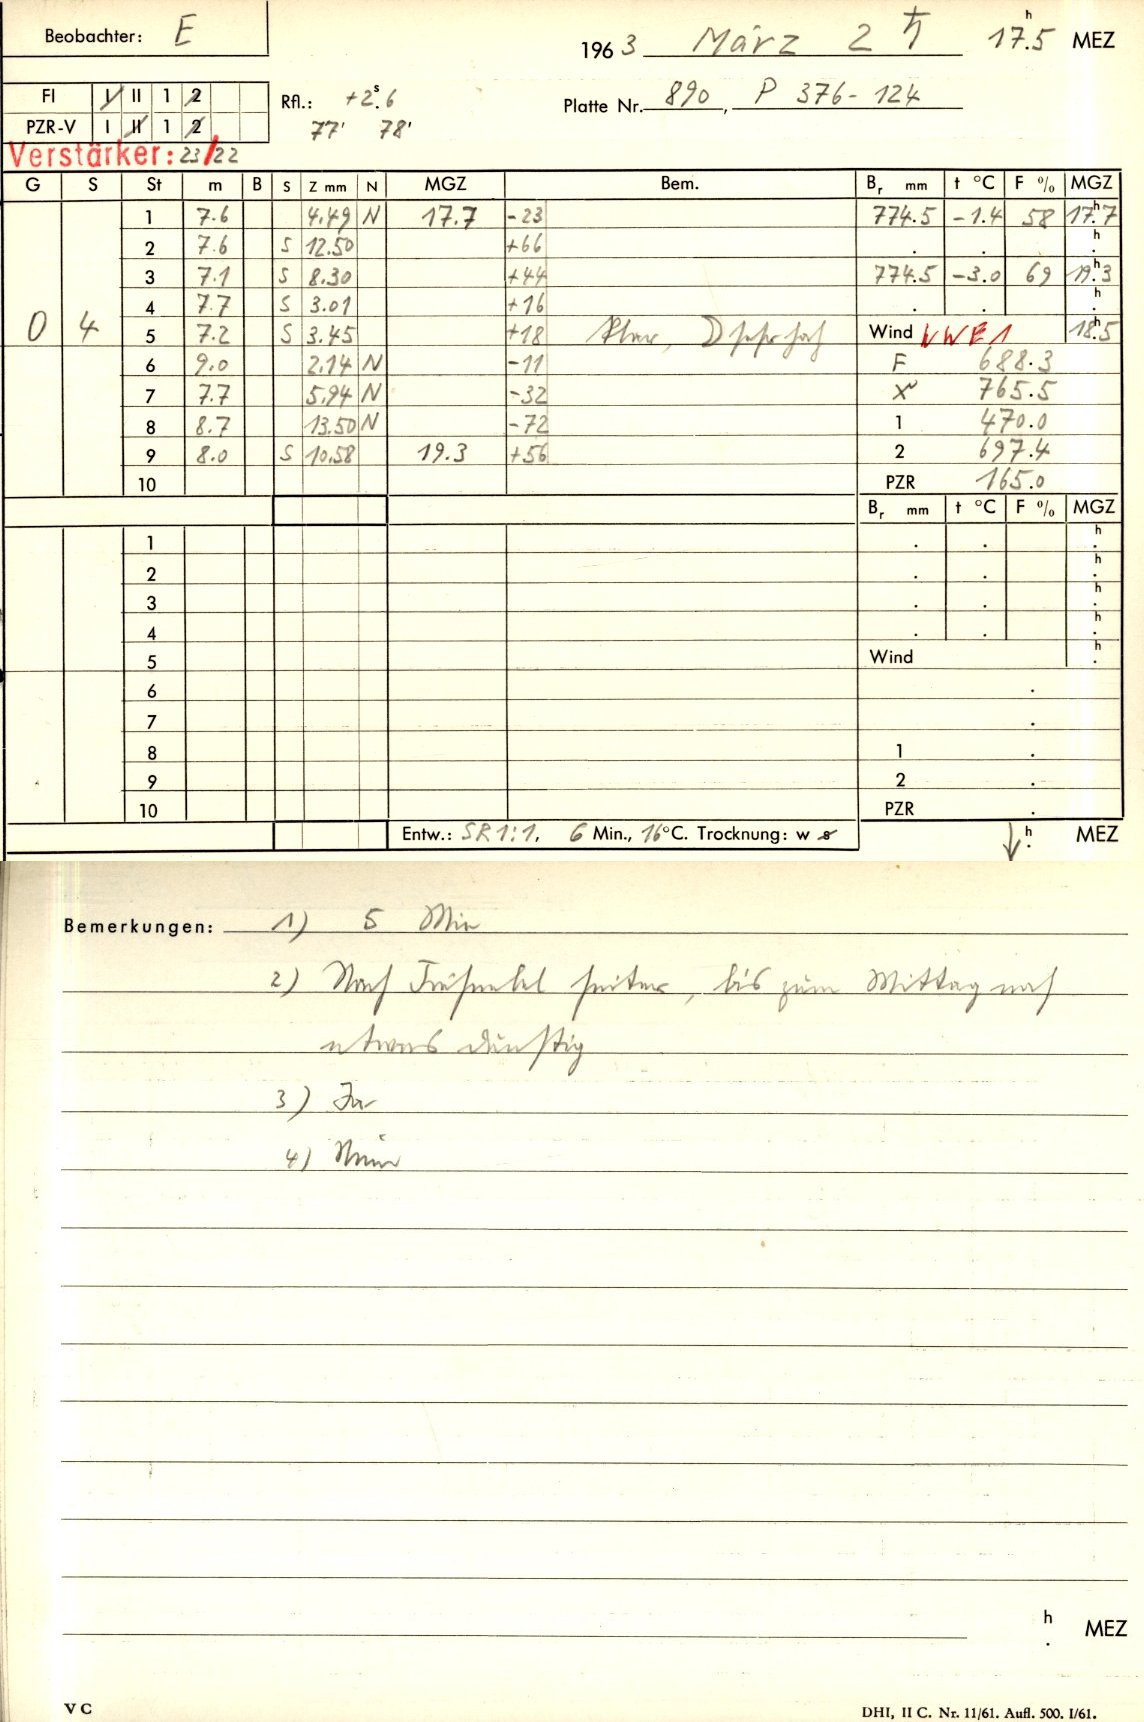 Beobachter: E
196 3 März 2 ♄ 17.5 h MEZ
FI I II 1 2
Rfl.: +2.6 s
Platte Nr. 890, P 376-124
PZR-V I II 1 2
77' 78'
Verstärker: 23/22
G S St m B S Z mm N MGZ Bem. Br mm t °C F % MGZ
1 7.6 4.49 N 17.7 -23 774.5 -1.4 58 17.7 h
2 7.6 S 12.50 +66 . . h .
3 7.1 S 8.30 +44 774.5 -3.0 69 19.3 h
4 7.7 S 3.01 +16 . . h .
0 4 5 7.2 S 3.45 +18 Klar, D sehr hoch Wind WE 1 18.5 h
6 9.0 2.14 N -11 F 688.3
7 7.7 5.94 N -32 X 765.5
8 8.7 13.50 N -72 1 470.0
9 8.0 S 10.58 19.3 +56 2 697.4
10 PZR 165.0
Br mm t °C F % MGZ
1 . . h .
2 . . h .
3 . . h .
4 . . h .
5 Wind h .
6 .
7 .
8 1 .
9 2 .
10 PZR .
Entw.: SR 1:1, 6 Min., 16 °C. Trocknung: w s h . MEZ
Bemerkungen: 1) 5 Min
2) Nach Frühnebel heiter, bis zum Mittag noch
etwas dunstig
3) Ja
4) Nein
h . MEZ
V C
DHI, II C. Nr. 11/61. Aufl. 500. I/61.